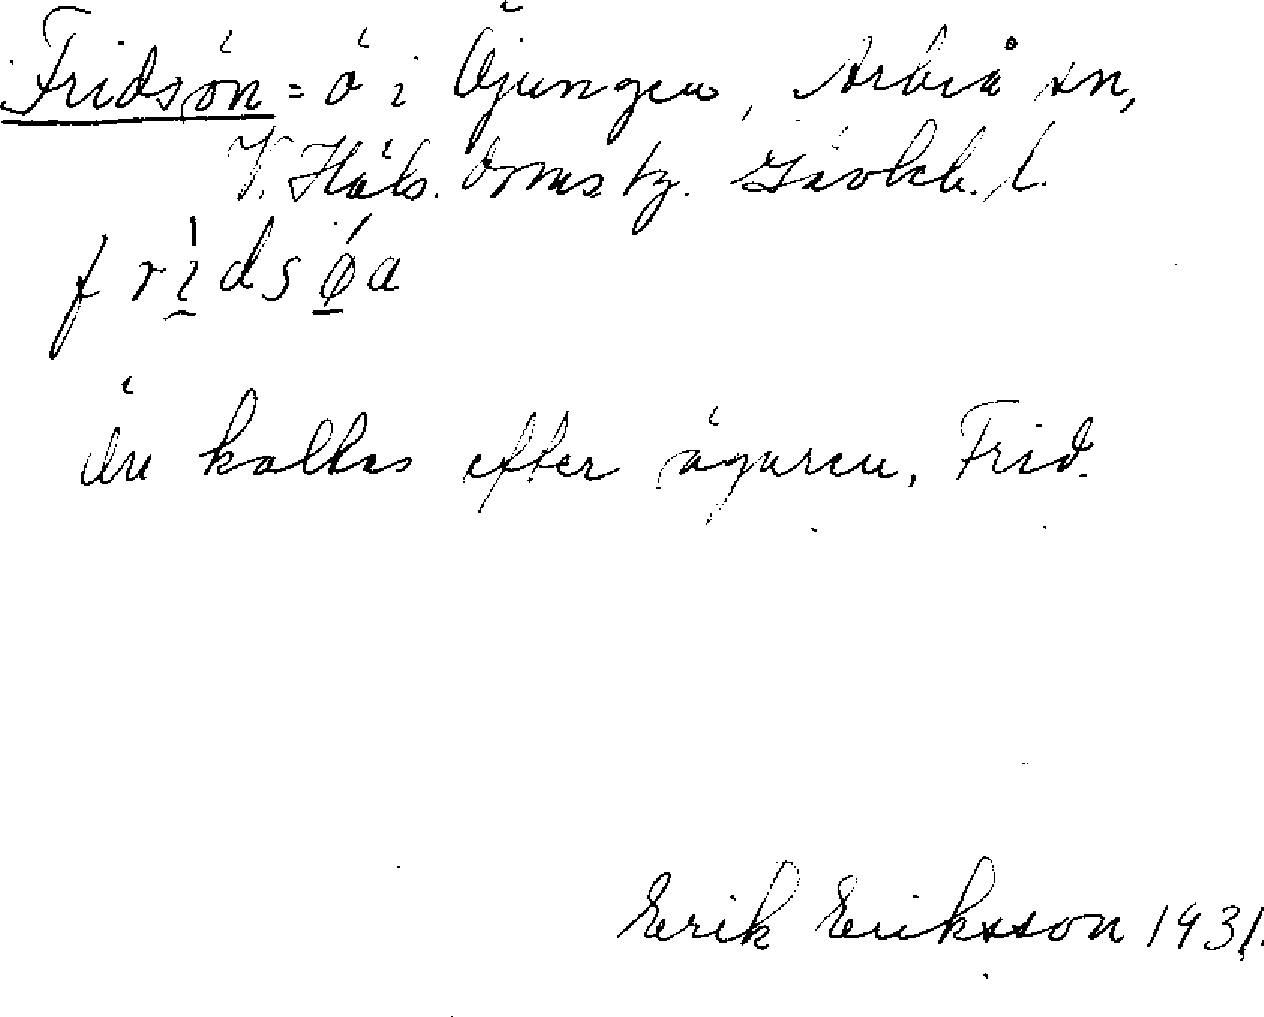 Fridsön = ö i Öjungen, Arbrå sn,
V. Häls. domstg. Gävleb. l.
frìdsǿa
ön kallas efter ägaren, Frid.
Erik Eriksson 1931.